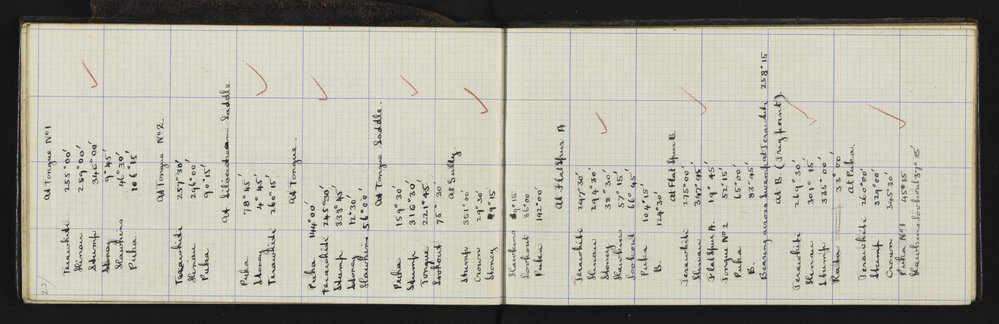 At Tongue No 1
Terawhiti 255°00'
289°00'
Stump 346°00'
Stoney 9°45'
Hawkins 46°30'
Puka 106°15'
At Tongue No 2.
Terawhiti 257°30'
296°00'
Puka 90°15'
At Silverstream Saddle
Puka 78°45'
Stoney 4°45'
Terawhiti 260°15'
At Tongue.
Puka 144°00'
Terawhiti 245°30'
Stump 333°45'
Stoney 12°30'
Hawkins 56°00'
At Tongue Saddle.
Puka 159°30'
Stump 316°30'
Tongue 221°45'
Lookout 75°30'
At Gully
Stump 351°00'
Crown 29°30'
Stoney 9°15
Hawkins
Lookout 86°00
Puka 142°00'
At Flat Spur A
Terawhiti 247°30'
294°30'
Stoney 38°30'
Hawkins 57°15'
Lookout 66°45'
Puka 104°15'
B. 124°30
At Flat Spur B.
Terawhiti 275°00'
340°45'
Flat Spur A. 19°45'
Tongue No 2 52°15'
Puka 65°00'
B. 83°45'
Bearing across swamp at Terawhiti 258°15
At B (Trig point).
Terawhiti 269°30'
301°15
Stump 335°00'
33°00'
At Puka.
Terawhiti 260°00'
Stump 329°00'
Crown 345°30'
Puka No 1 45°15
Hawkins lookout 37°15'